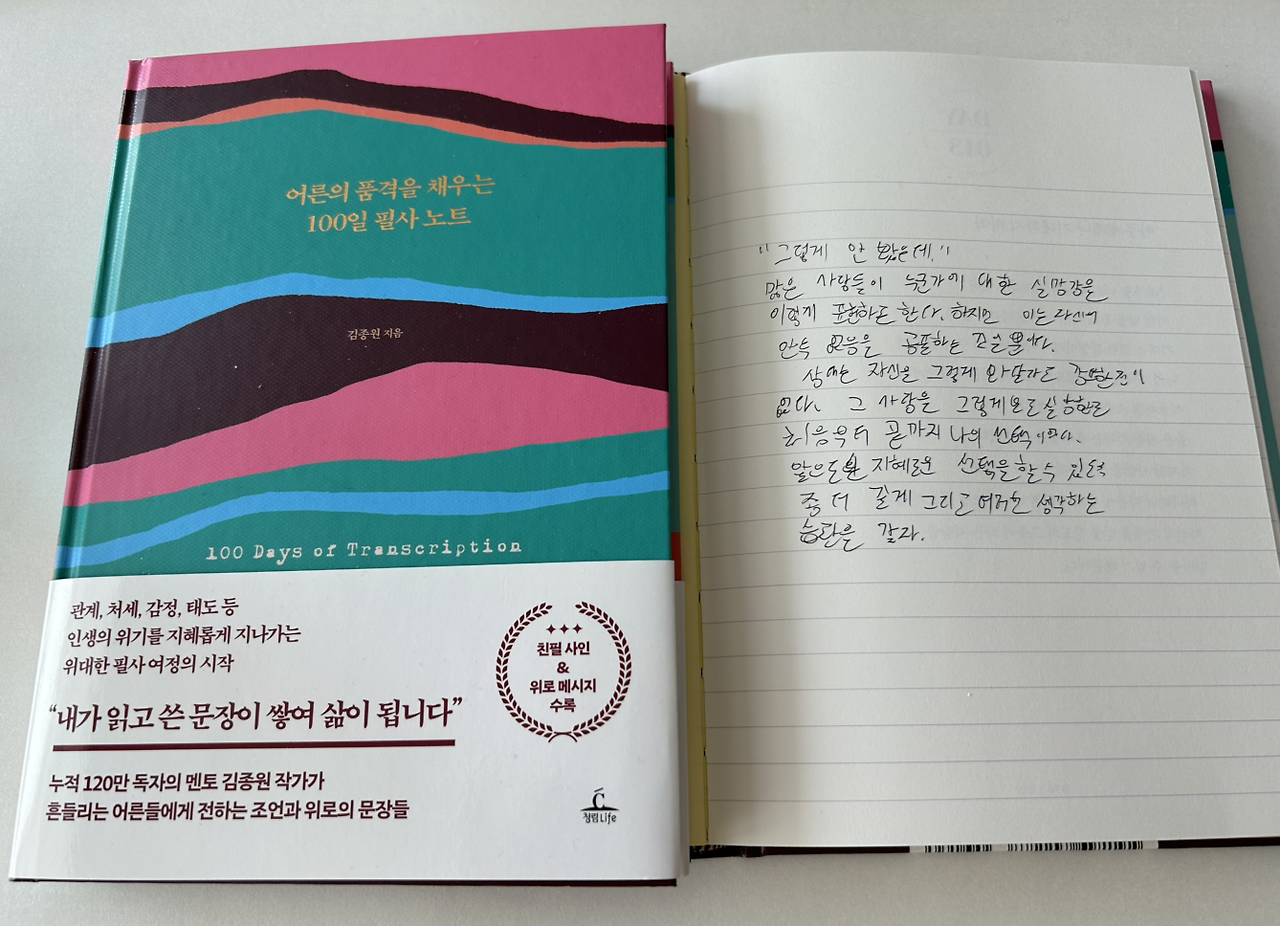 어른의 품격을 채우는
100일 필사 노트
김종원 지음
100 Days of Transcription
관계, 처세, 감정, 태도 등
인생의 위기를 지혜롭게 지나가는
위대한 필사 여정의 시작
“내가 읽고 쓴 문장이 쌓여 삶이 됩니다”
누적 120만 독자의 멘토 김종원 작가가
흔들리는 어른들에게 전하는 조언과 위로의 문장들
친필 사인
&
위로 메시지
수록
청림Life
"그렇게 안 봤는데."
많은 사람들이 누군가에 대한 실망감을
이렇게 표현하곤 한다. 하지만 이는 자신의
안목 없음을 공표하는 것일 뿐이다.
상대는 자신을 그렇게 봐달라고 강요한 적이
없다. 그 사람을 그렇게 보고 실망한
처음부터 끝까지 나의 선택이다.
앞으로 지혜로운 선택을 할 수 있도록
좀 더 길게 그리고 여러 번 생각하는
습관을 갖자.